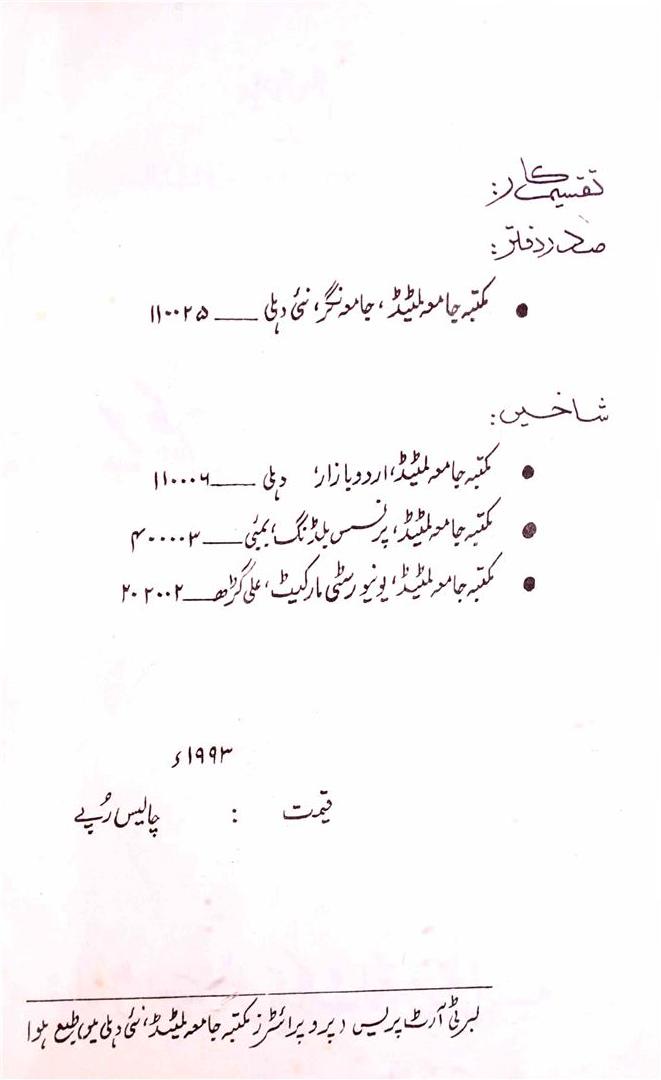 تقسیم کار:
صدر دفتر:
● مکتبہ جامعہ لمیٹڈ، جامعہ نگر، نئی دہلی — ۱۱۰۰۲۵
شاخیں:
● مکتبہ جامعہ لمیٹڈ، اردو بازار، دہلی — ۱۱۰۰۰۶
● مکتبہ جامعہ لمیٹڈ، پرنسس بلڈنگ، بمبئی — ۴۰۰۰۰۳
● مکتبہ جامعہ لمیٹڈ، یونیورسٹی مارکیٹ، علی گڑھ — ۲۰۲۰۰۲
۱۹۹۳ء
قیمت : چالیس رُپے
لبرٹی آرٹ پریس (پروپرائٹرز مکتبہ جامعہ لمیٹڈ، نئی دہلی میں طبع ہوا